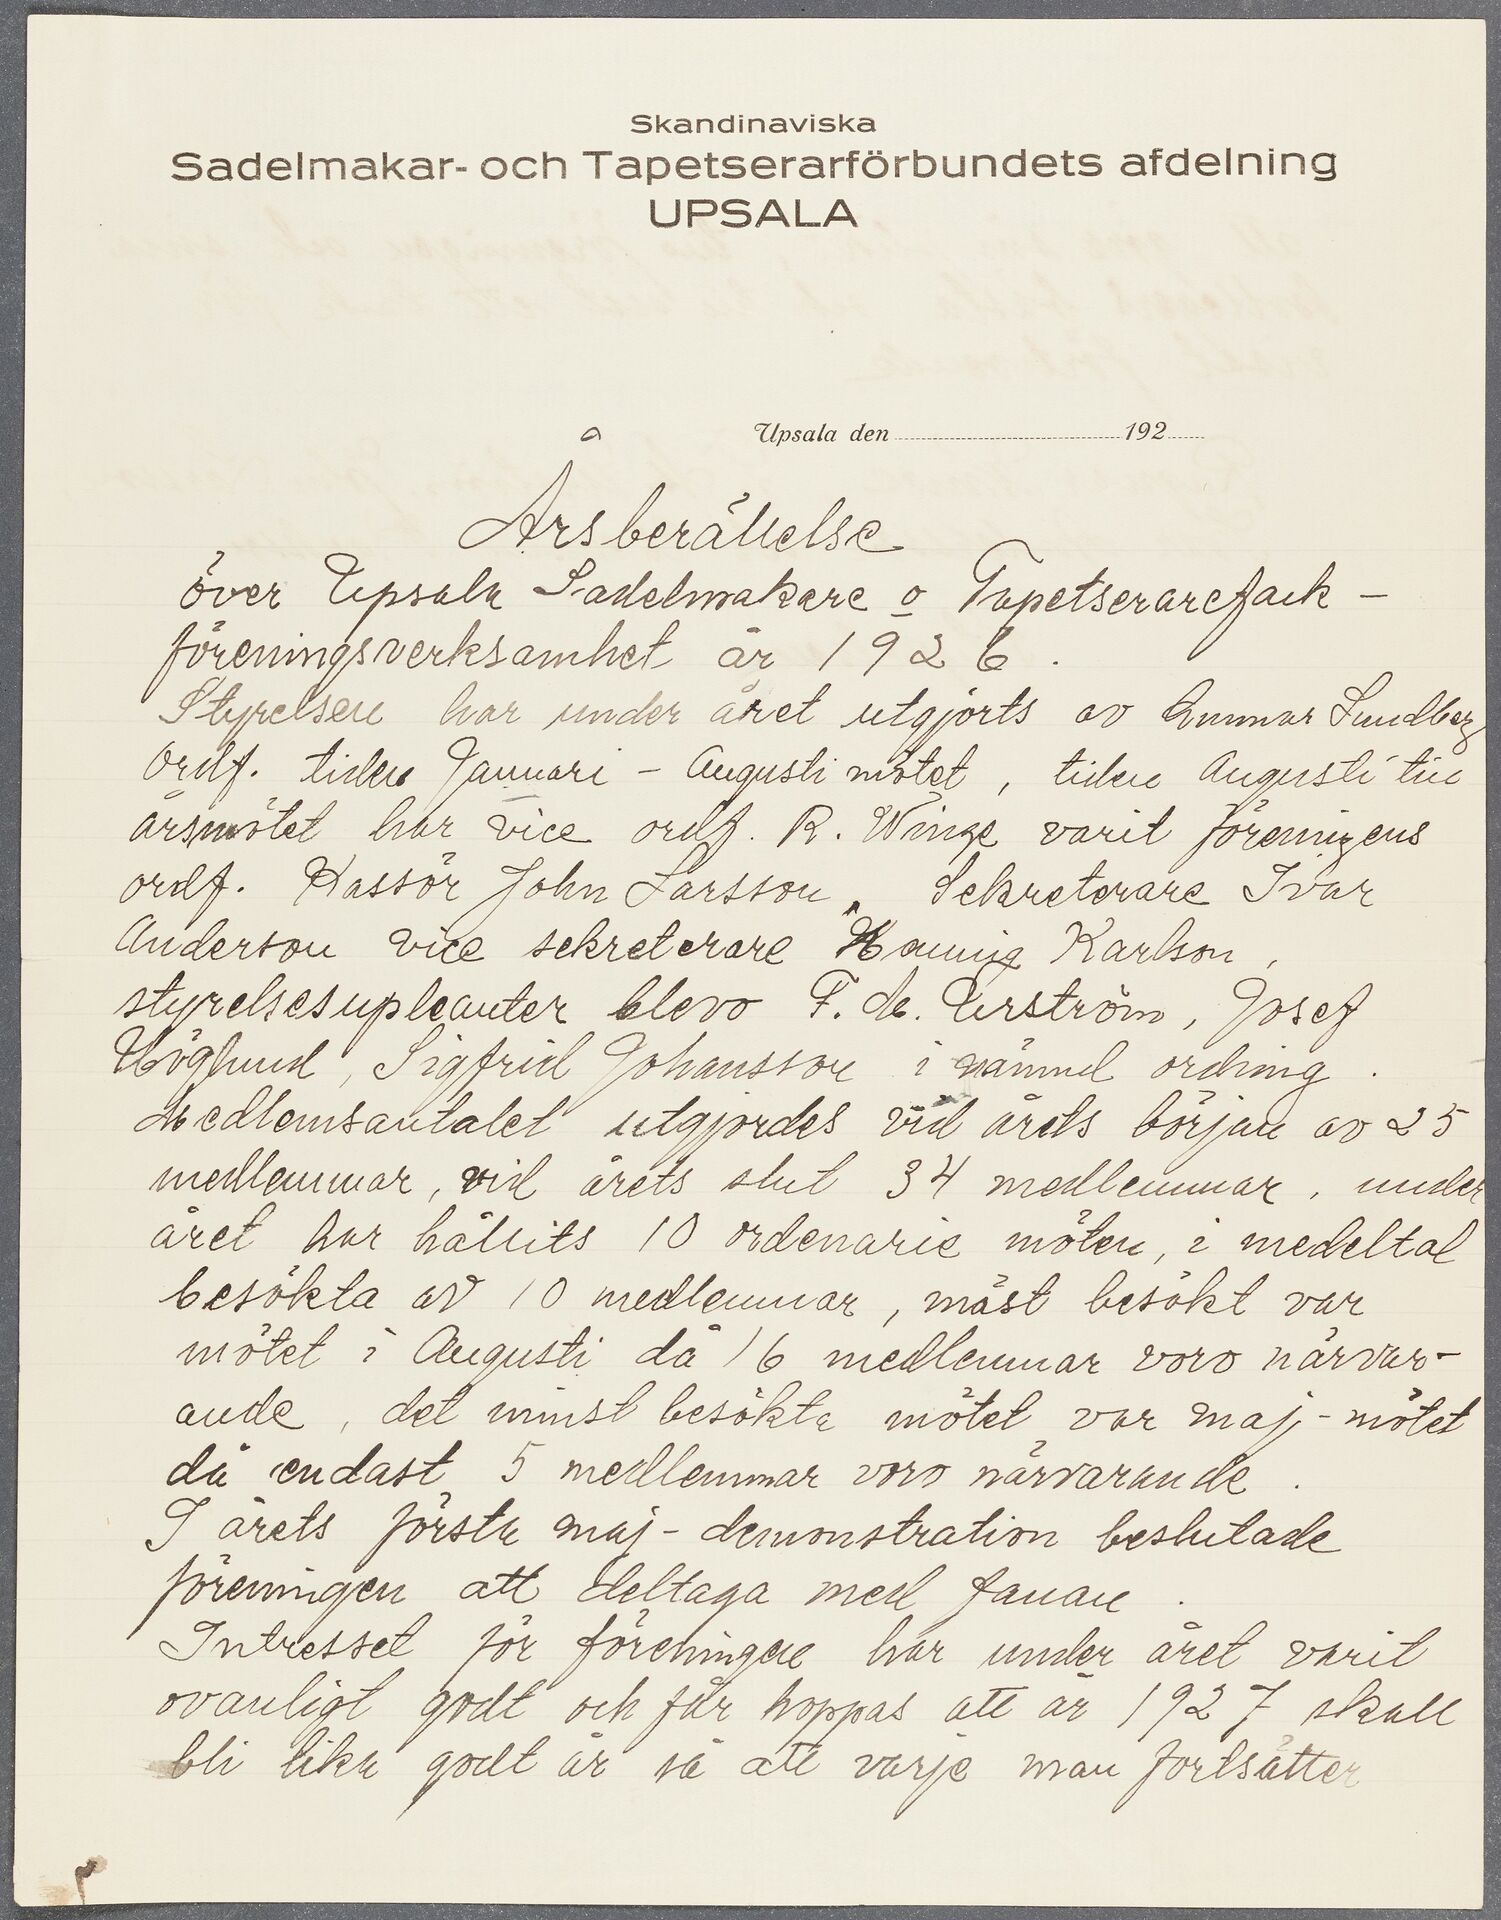 Skandinaviska
Sadelmakar- och Tapetserarförbundets afdelning
UPSALA
Upsala den 192
Årsberättelse
över Upsala Sadelmakare o Tapetserarefack-
föreningsverksamhet år 1926.
Styrelsen har under året utgjorts av Gunnar Sundberg
Ordf. tiden Januari - Augusti mötet, tiden Augusti till
årsmötet har vice ordf. R. Winge varit föreningens
ordf. Kassör John Larsson, Sekreterare Ivar
Anderson vice sekreterare Hennig Karlson,
styrelsesupleanter blevo F. M. Urström, Josef
Höglund, Sigfrid Johansson i nämnd ordning.
Medlemsantalet utgjordes vid årets början av 25
medlemmar, vid årets slut 34 medlemmar, under
året har hållits 10 ordenarie möten, i medeltal
besökta av 10 medlemmar, mäst besökt var
mötet i Augusti då 16 medlemmar voro närvar-
ande, det minst besökta mötet var maj-mötet
då endast 5 medlemmar voro närvarande.
I årets första maj-demonstration beslutade
föreningen att deltaga med fanan.
Intresset för föreningen har under året varit
ovanligt godt och får hoppas att år 1927 skall
bli lika godt år så att varje man fortsätter